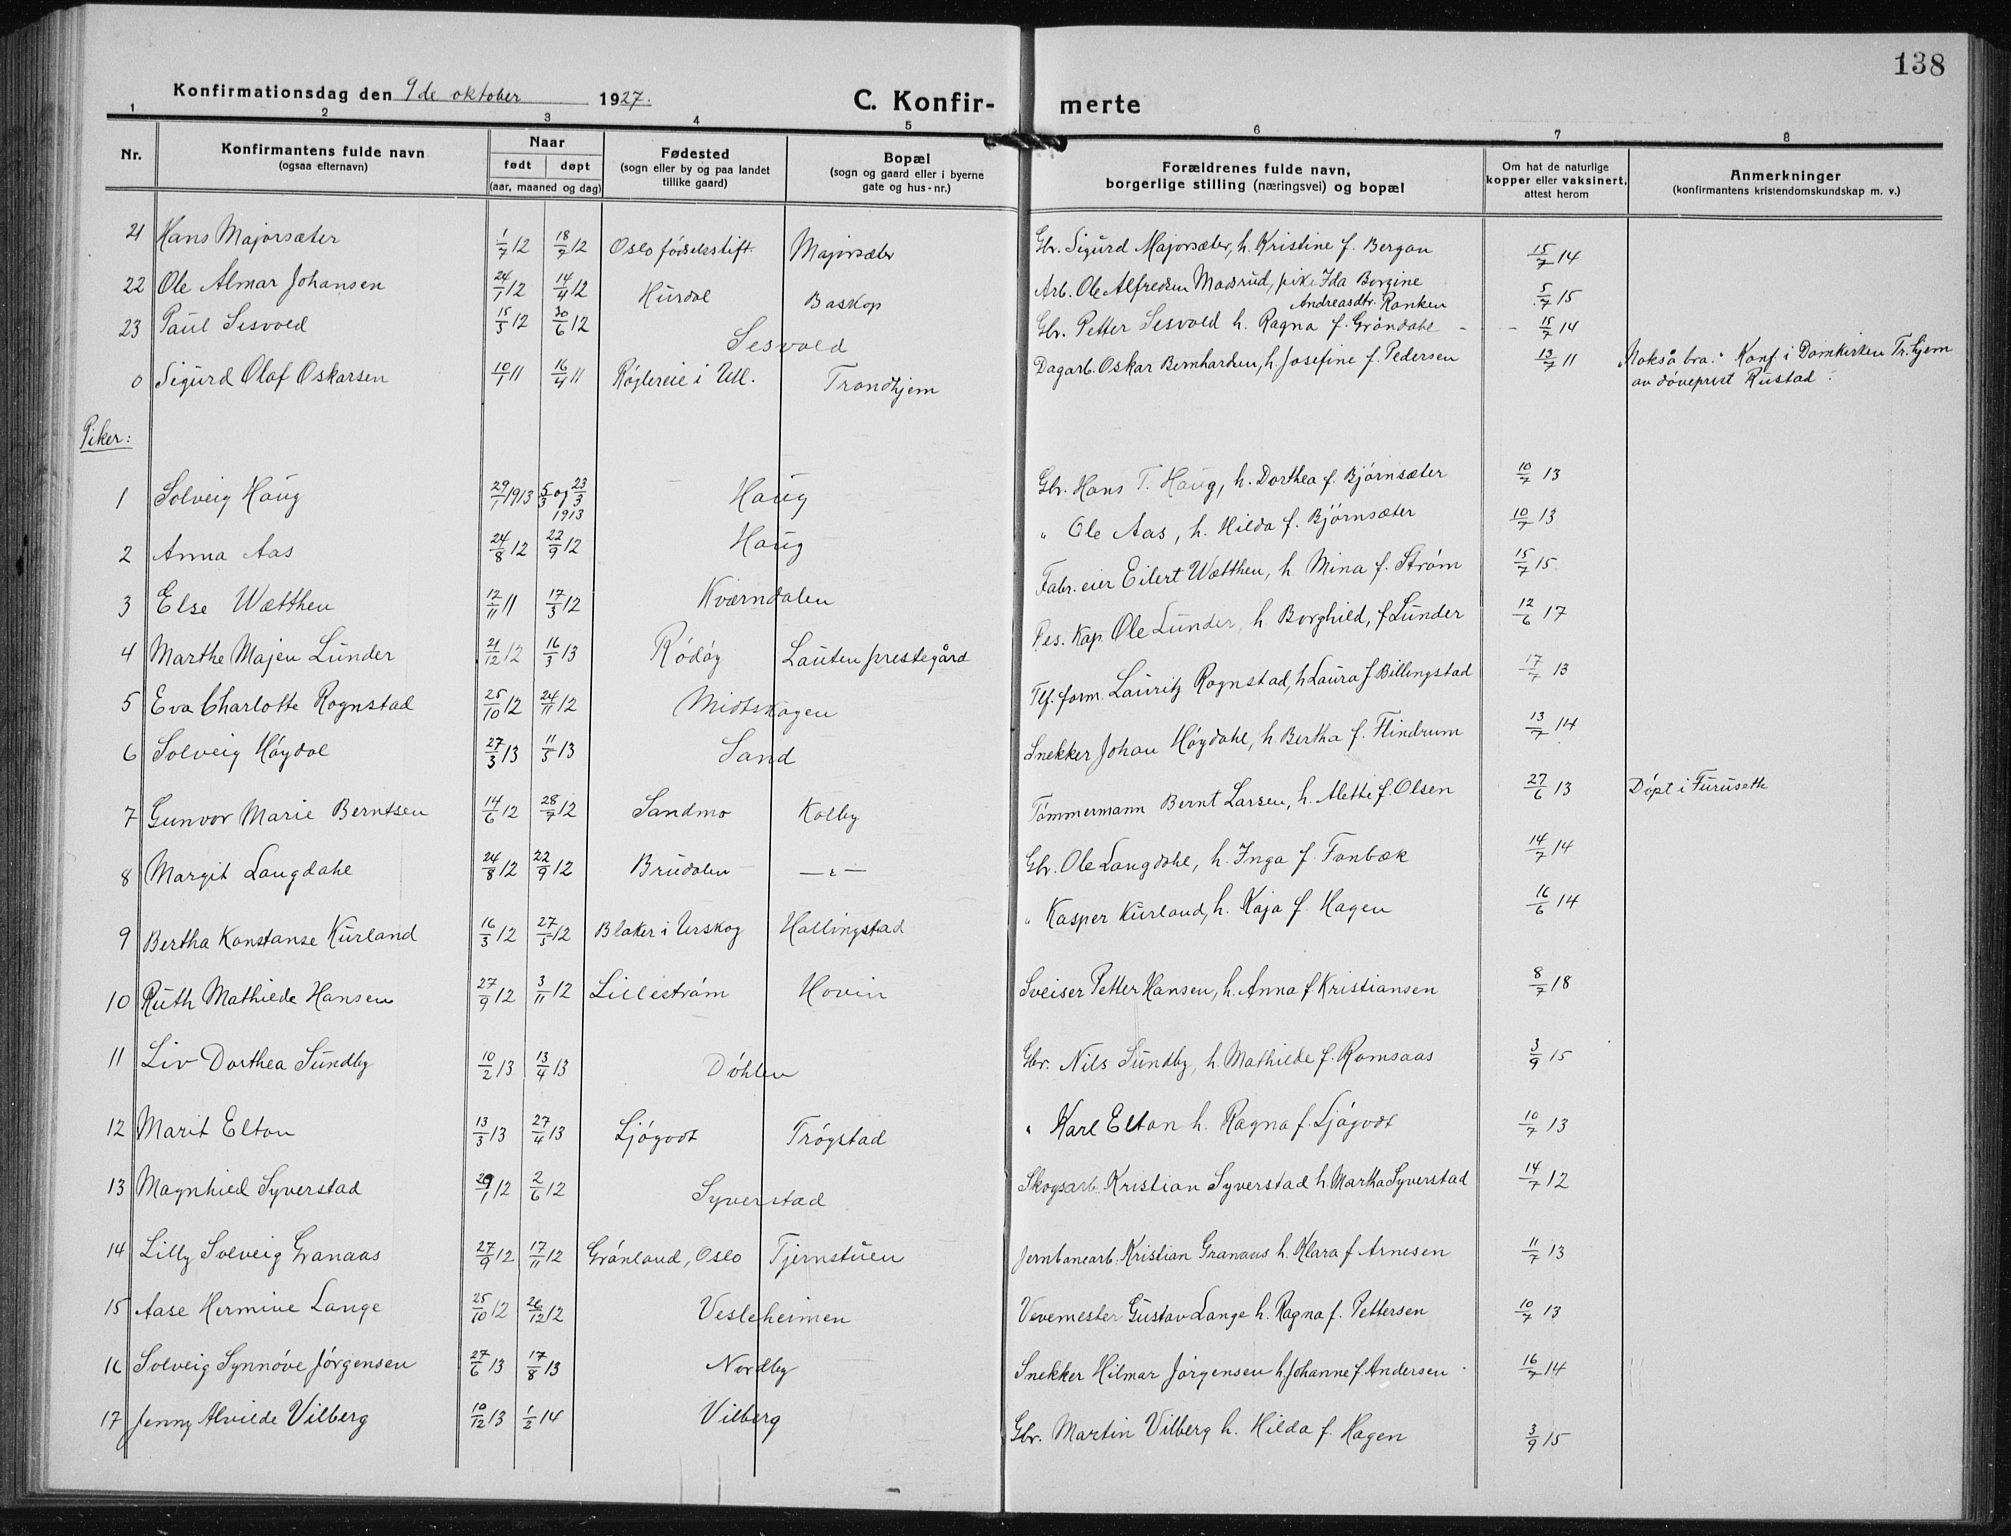 138
Konfirmationsdag den 9de oktober 1927.
C. Konfir- merte
1 2 3 4 5 6 7 8
Nr.
Konfirmantens fulde navn
(ogsaa efternavn)
Naar
født døpt
(aar, maaned og dag)
Fødested
(sogn eller by og paa landet
tillike gaard)
Bopæl
(sogn og gaard eller i byerne
gate og hus-nr.)
Forældrenes fulde navn,
borgerlige stilling (næringsvei) og bopæl
Om hat de naturlige
kopper eller vaksinert,
attest herom
Anmerkninger
(konfirmantens kristendomskundskap m. v.)
21 Hans Majorsæter 1/7 12 18/7 12 Oslo fødselsstift. Majorsæter Gbr. Sigurd Majorsæter, h. Kristine f. Bergan 15/7 14
22 Ole Almar Johansen 24/1 12 14/4 12 Hurdal Baskop Arb. Ole Alfredsen Madsrud, pike Ida Bergine Andreasdtr. Ranken 5/7 15
23 Paul Sesvold 15/5 12 30/6 12 Sesvold Gbr. Petter Sesvold h. Ragna f. Grøndahl - - 15/7 14
0 Sigurd Olaf Oskarsen 10/1 11 16/4 11 Røglereie i Ull. Trondhjem Dagarb. Oskar Bernhardsen, h. Josefine f. Pedersen 13/7 11 "Nokså bra." Konf. i Domkirken Tr.hjem
av døveprest Rustad.
Piker:
1 Solveig Haug 29/1 1913 5/3 og 23/3 1913 Haug Gbr. Hans T. Haug, h. Dorthea f. Bjørnsæter 10/7 13
2 Anna Aas 24/8 12 22/9 12 Haug " Ole Aas, h. Hilda f. Bjørnsæter 10/7 13
3 Else Wætthen 12/11 11 17/3 12 Kværndalen Fabr. eier Eilert Wætthen, h. Mina f. Strøm 15/7 15
4 Marthe Majen Lunder 21/12 12 16/3 13 Rødøy Lauten prestegård Res. Kap. Ole Lunder, h Borghild, f Lunder 12/6 17
5 Eva Charlotte Rognstad 25/10 12 24/11 12 Midtskogen Tlf. form. Lauritz Rognstad, h Laura f Billingstad 17/7 13
6 Solveig Høydal 27/3 13 11/5 13 Sand Snekker Johan Høydahl, h. Bertha f. Flindrum 13/7 14
7 Gunvor Marie Berntsen 14/6 12 28/7 12 Sandmo Kolby Tømmermann Bernt Larsen, h. Alette f. Olsen 27/6 13 Døpt i Furuseth
8 Margit Langdahl 24/8 12 22/9 12 Brudalen —"— Gbr. Ole Langdahl, h. Inga f. Fonbæk 14/7 14
9 Bertha Konstanse Kurland 16/3 12 27/5 12 Blaker i Urskog Hallingstad " Kasper Kurland, h. Kaja f. Hagen 16/6 14
10 Ruth Mathilde Hansen 27/9 12 3/11 12 Lillestrøm Hovin Sveiser Petter Hansen, h. Anna f Kristiansen 8/7 18
11 Liv Dorthea Sundby 10/2 13 13/4 13 Døhlen Gbr. Nils Sundby, h. Mathilde f. Romsaas 3/9 15
12 Marit Elton 13/3 13 27/4 13 Ljøgodt Trøgstad " Karl Elton h. Ragna f. Ljøgodt 10/7 13
13 Magnhild Syverstad 29/1 12 2/6 12 Syverstad Skogsarb. Kristian Syverstad h. Martha Syverstad 14/7 12
14 Lilly Solveig Granaas 27/9 12 17/11 12 Grønland, Oslo Tjernstuen Jernbanearb. Kristian Granaas h. Klara f Arnesen 11/7 13
15 Aase Hermine Lange 25/10 12 26/12 12 Vesleheimen Vevemester Gustav Lange h. Ragna f. Pettersen 10/7 13
16 Solveig Synnøve Jørgensen 27/6 13 17/8 13 Nordby Snekker Hilmar Jørgensen h. Johanne f Andersen 16/7 14
17 Jenny Alvilde Vilberg 10/12 13 1/2 14 Vilberg Gbr. Martin Vilberg h. Hilda f. Hagen 3/9 15